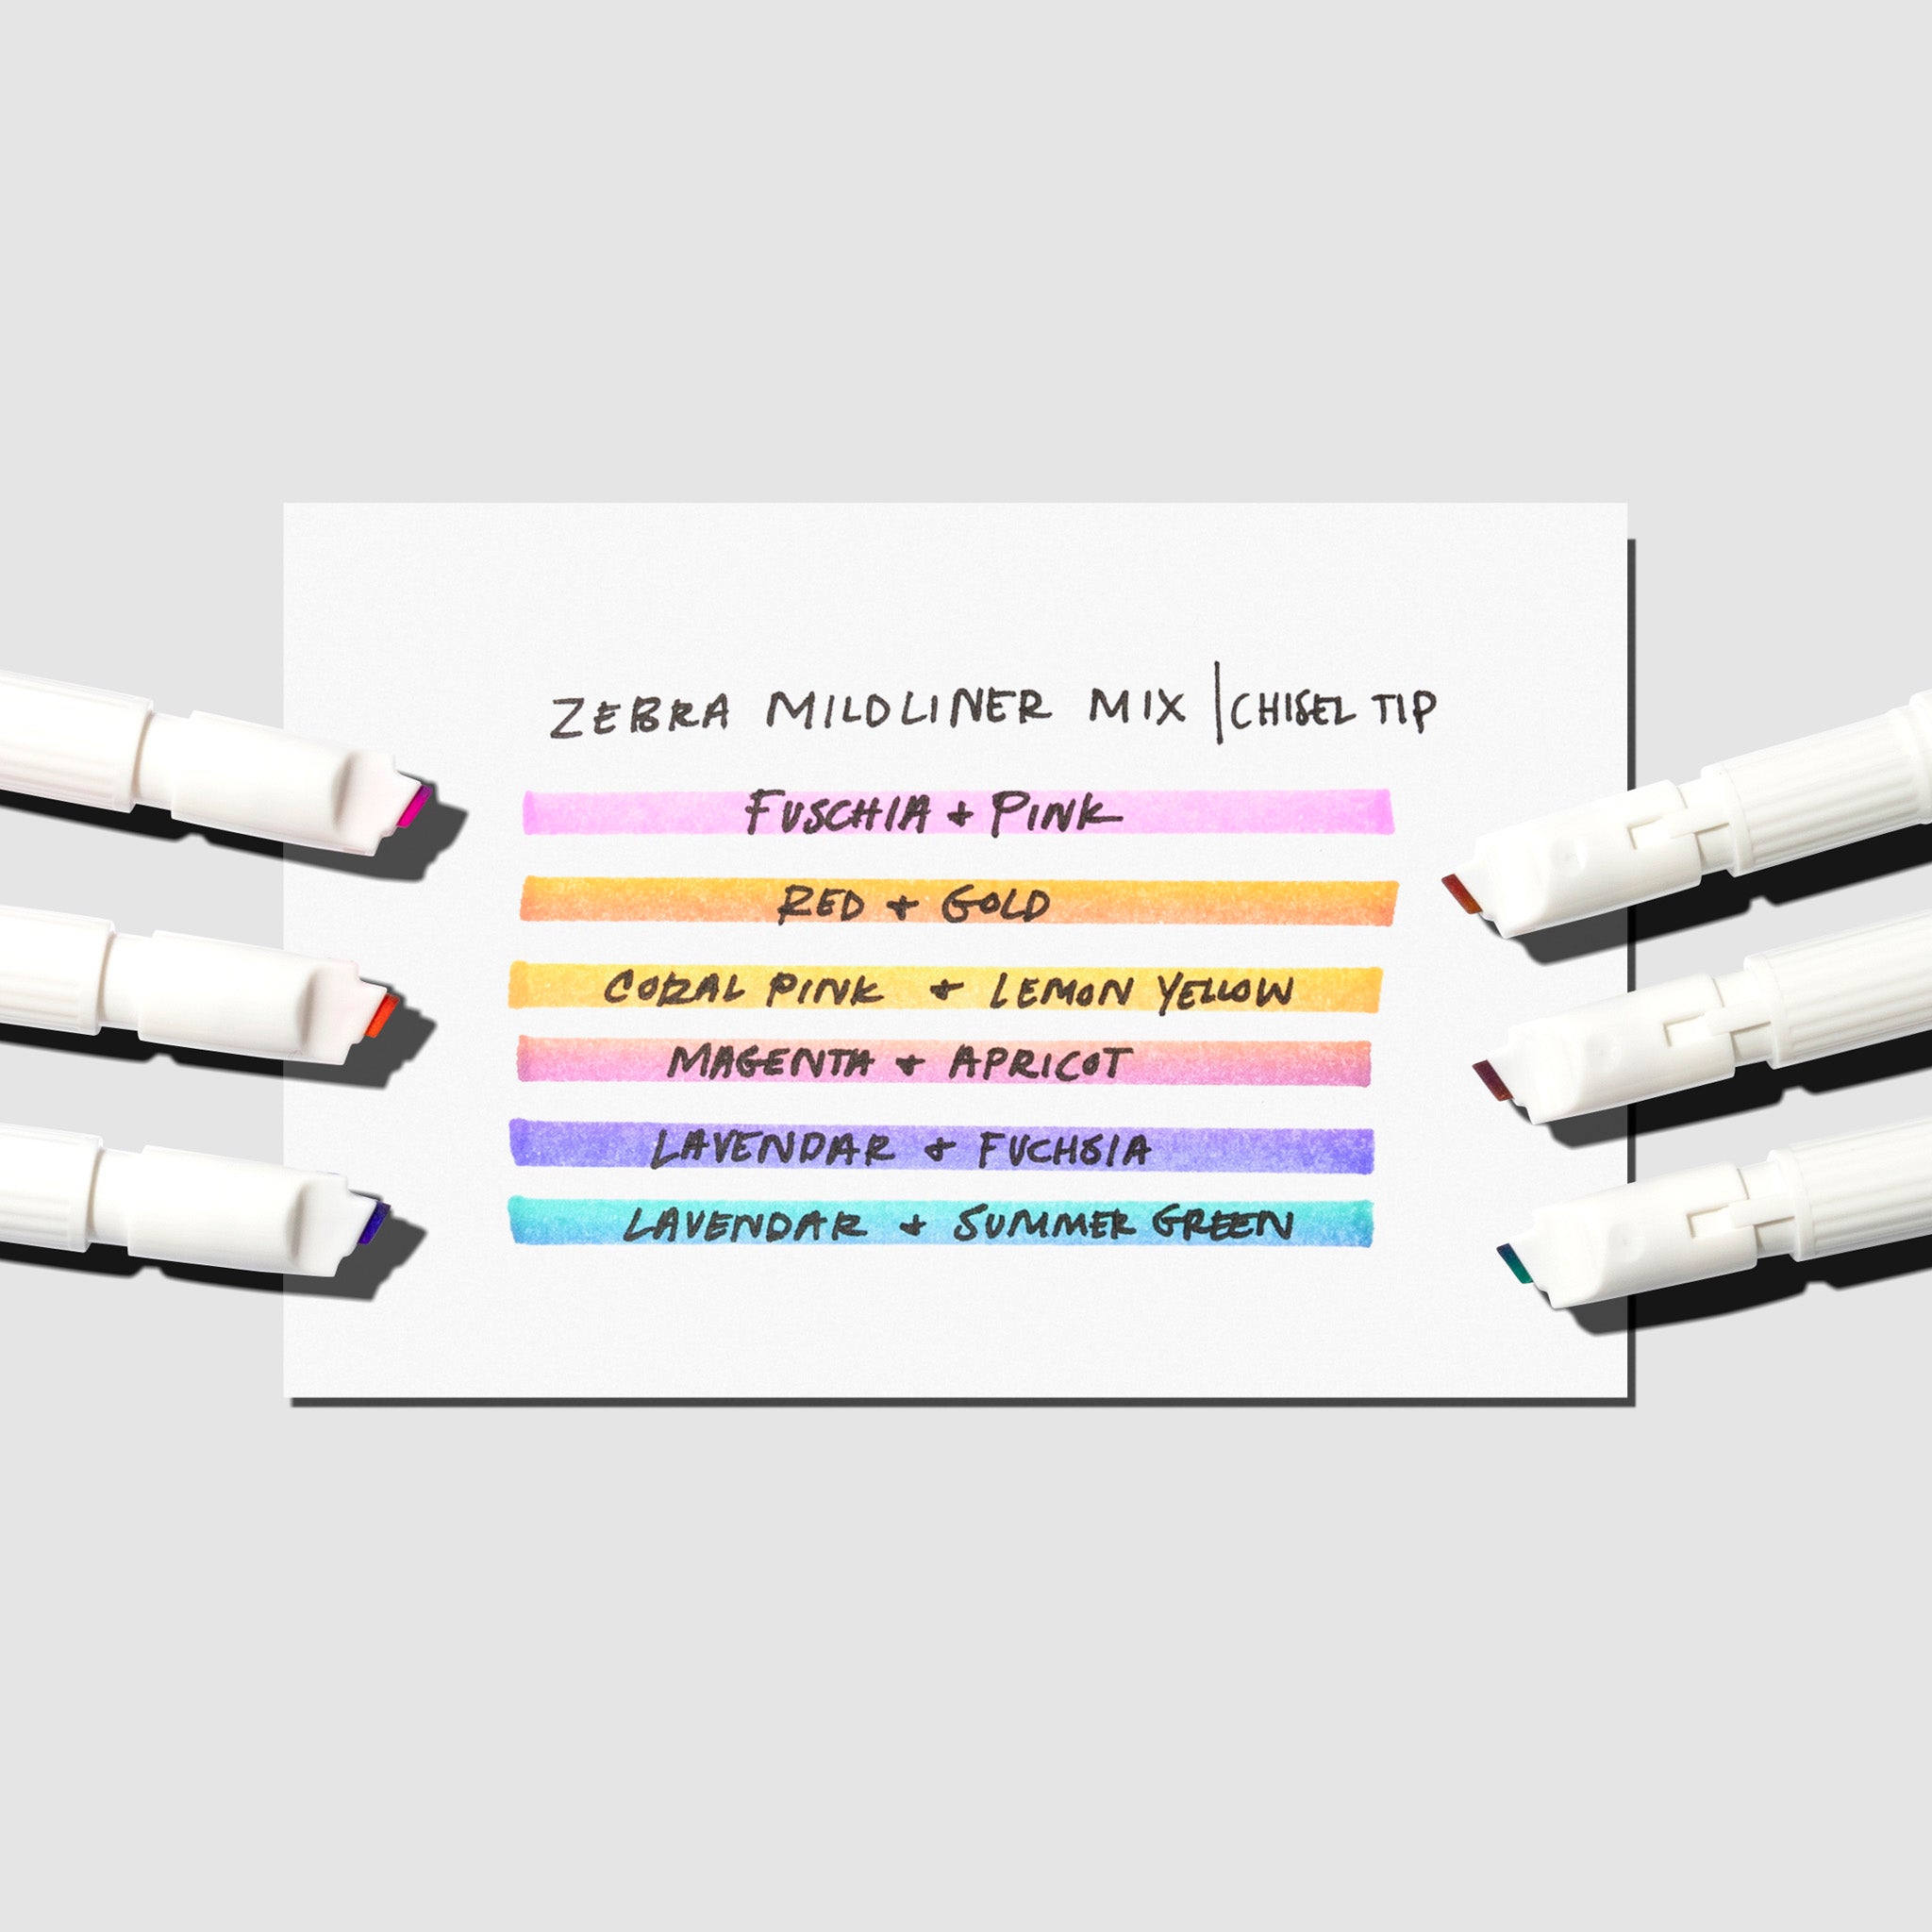 ZEBRA MILDLINER MIX | CHISEL TIP
FUSCHIA + PINK
RED + GOLD
CORAL PINK + LEMON YELLOW
MAGENTA + APRICOT
LAVENDAR + FUCHSIA
LAVENDAR + SUMMER GREEN